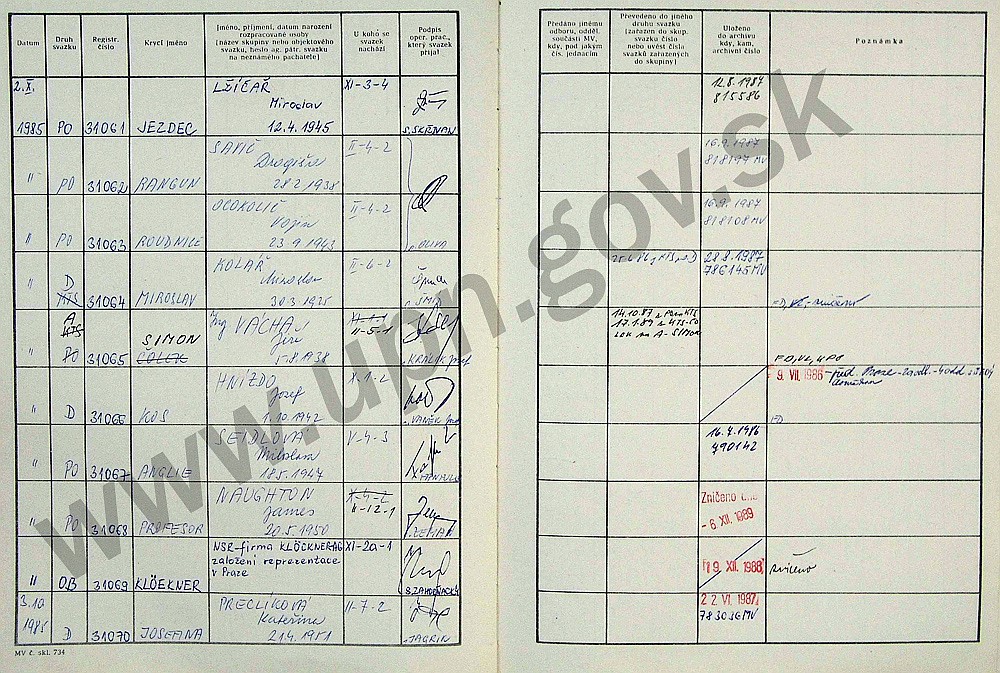 Datum
Druh svazku
Registr. číslo
Krycí jméno
Jméno, příjmení, datum narození
rozpracované osoby
(název skupiny nebo objektového
svazku, heslo ag. pátr. svazku
na neznámého pachatele)
U koho se
svazek
nachází
Podpis
oper. prac.,
který svazek
přijal
Předáno jinému
odboru, odděl.
součásti MV,
kdy, pod jakým
čís. jednacím
Převedeno do jiného
druhu svazku
(zařazen do skup.
svazku číslo
nebo uvést číslo
svazků zařazených
do skupiny)
Uloženo
do archivu
kdy, kam,
archivní číslo
Poznámka
2. X. LŽÍČAŘ XI-3-4 12.8.1987
Miroslav 815586
1985 PO 31061 JEZDEC 12.4.1945
SAVIČ II-4-2 16.9.1987
Dragiša 818197 MV
" PO 31062 RANGUN 28.2.1938
OCOKOLIČ II-4-2 16.9.1987
Vojin 818108 MV
" PO 31063 ROUDNICE 23.9.1943 OLIVA
KOLÁŘ II-6-2 28.8.1987
D Miroslav 786145 MV
" 31064 MIROSLAV 30.3.1925
A Ing. VÁCHA XI-1-1 14.10.87
SIMON Jiří II-5-1 17.1.89
" PO 31065 1.8.1938 KRÁLÍK Josef
HNÍZDO X-1-2 9. VII. 1986
Josef
" D 31066 KOS 1.10.1942 VANĚK
SEIDLOVÁ V-4-3 16.4.1986
Miloslava 790142
" PO 31067 ANGLIE 18.5.1947
NAUGHTON X-4-2 Zničeno dne
James II-12-1 - 6. XII. 1989
" PO 31068 PROFESOR 20.5.1950 ZEMAN
NSR-firma KLÖCKNER AG XI-2a-1
založení reprezentace 9. XII. 1988 zničeno
v Praze
" OB 31069 KLÖEKNER
3.10 PRECLÍKOVÁ II-7-2 2 2. VI. 1987
Kateřina 783036 MV
1985 D 31070 JOSEFINA 21.4.1951 JAGRIN
MV č. skl. 734
www.upn.gov.sk